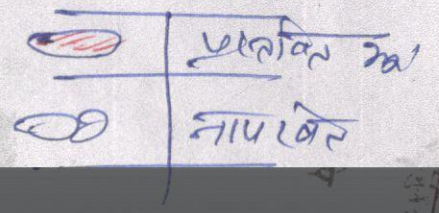 प्रस्तावित
नापखेत